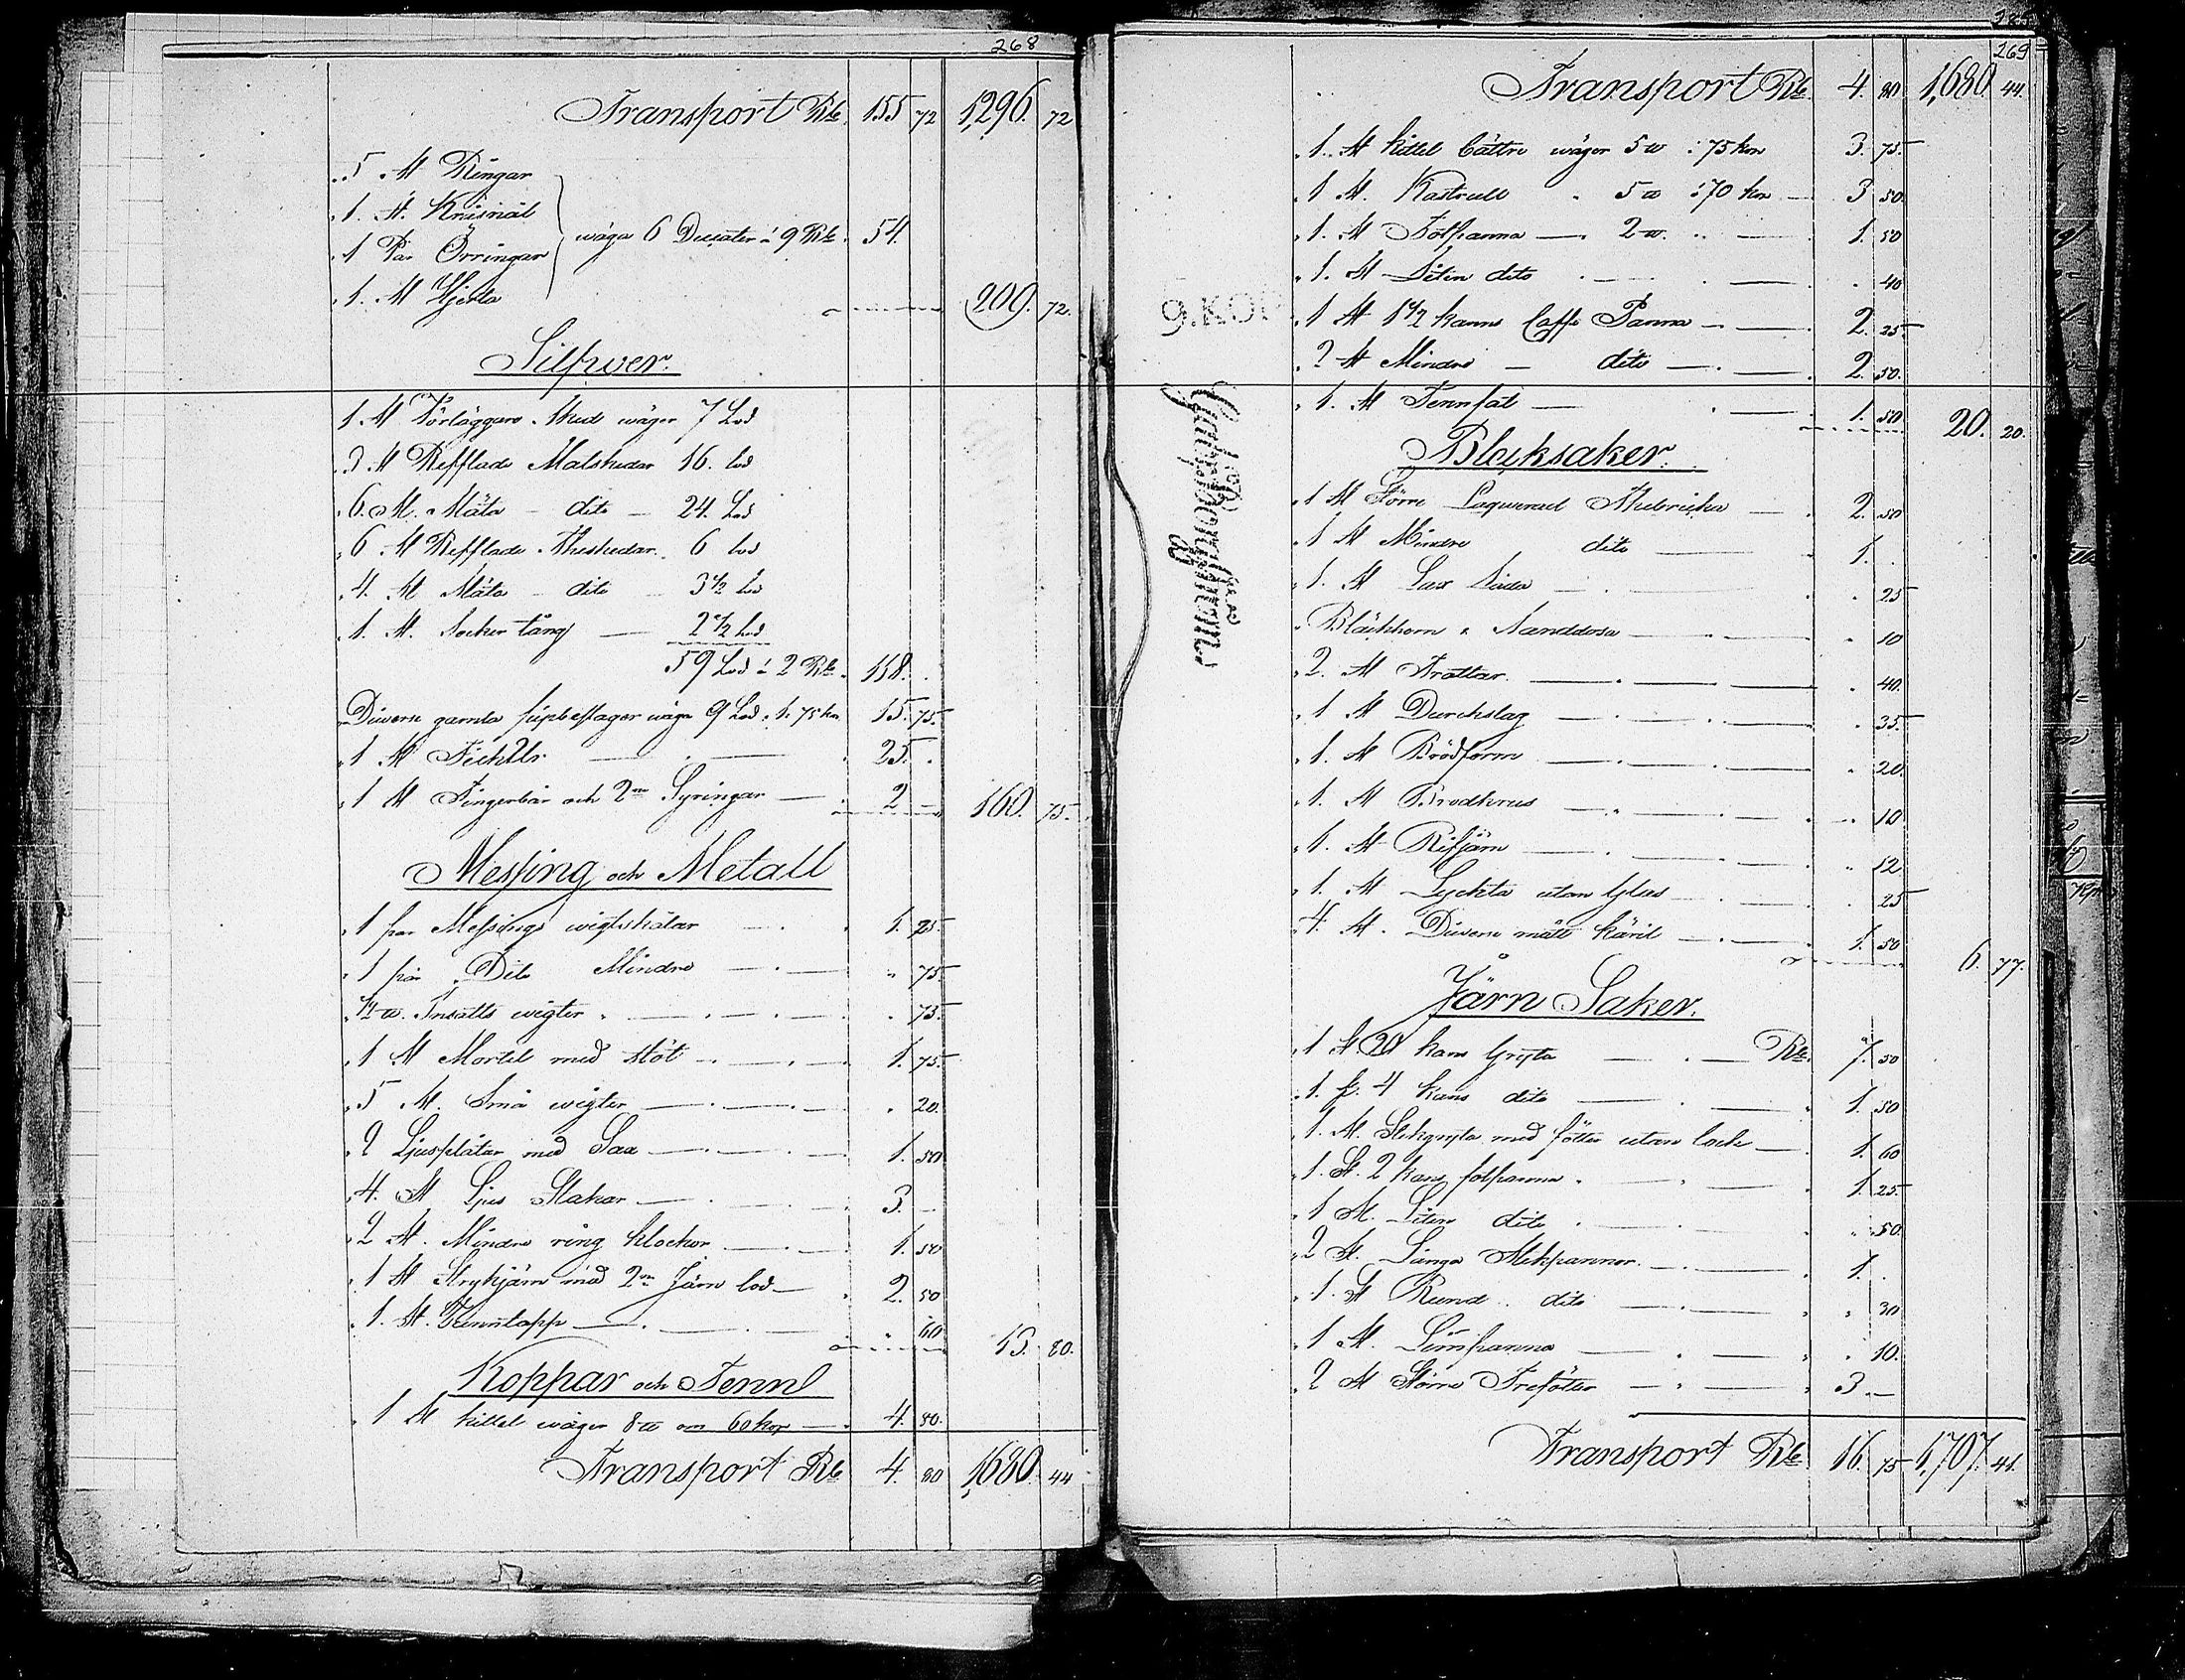 268
Transport Rdr 155 72 1,296. 72
5 St Ringar
1. St. Kråsnål
1 Par Örringar
wäga 6 Ducater à 9 Rdr. 54.
1. St Hjerta
209. 72.
Silfwer.
1 St Förläggare Sked wäger 7 Lod
3 St Refflade Matskedar 16. lod
6. St. Släta dito 24. Lod
6 St Refflade Theskedar 6 lod
4. St Släta dito 3 1/2 lod
1. St. Socker tång 2 1/2 Lod
59 Lod à 2 Rdr. 118.
Diverse gamla beslager wäga 9 Lod à 1: 75 kr 15. 75.
1 St Fick Ur 25.
1 St Fingerbår och 2ne Syringar 2 160. 75.
Messing och Metall
1 par Messings wigtskålar 1. 25.
1 par Dito Mindre " 75
Insatts wigter . 75.
1 St Mortel med stöt 1. 75
5 St. Små wigter . 20.
2 Ljusplåtar med Sax 1. 50
4. St Ljus Stakar 3. -
2 St. Mindre ring klockor 1. 50
1 St Strykjärn med 2ne Järn lod 2. 50
1. St. Tunntapp " 60
15. 80.
Koppar och Tenn
1 St kittel wäger 8 ℔ om 60 kop 4. 80.
Transport Rdr 4 80 1,680. 44
269
Transport Rdr. 4. 80 1,680. 44.
1. St kittel bättre wäger 5 ℔ à 75 kop 3. 75.
1 St. Kastrull " 5 ℔ à 70 kop 3 50.
1. St Fotpanna 2 ℔ 1. 50
1. St Liten dito . 40
1 St 1 1/2 kanns Caffe Panna 2. 25
2 St Mindre dito 2. 50.
1. St Tennfat 1. 50 20. 20.
9. KOP
Blecksaker.
1 St Större Laquerad Thebricka 2. 50
1 St Mindre dito 1. .
1. St Sax låda . 25
Bläckhorn & Sanddosa . 10
2. St Trattar . 40.
1 St Durchslag . 35.
1. St Brödform . 20
1. St Brödkrus . 10
1. St Rifjärn " 12
1. St Lyckta utan Glas . 25
4 St. Diverse mått käril 1. 50
6. 77.
Järn Saker.
1 St 20 kans Gryta Rdr. 7. 50
1. St 4 kans dito 1. 50
1. St. Stekgryta med fötter utan lock 1. 60
1. St. 2 kans fotpanna 1. 25.
1 St. Liten dito . 50.
2 St. Långa Stekpannor. 1. .
1. St Rund dito " 30
1 St. Limpanna " 10.
2 St Större Trefötter 3. -
Transport Rdr 16. 75 1,707. 41.